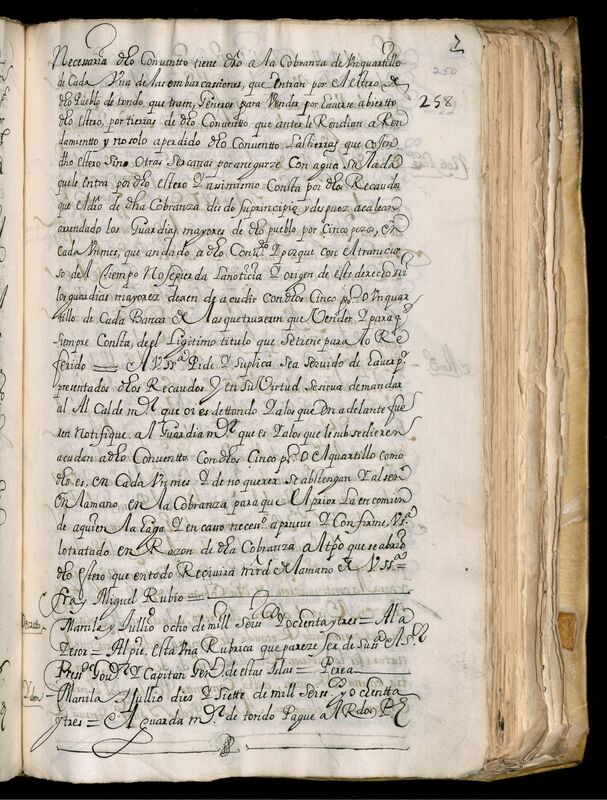 2
250
258
Necesaria dho Conventto tiene dro a la Cobranza de Vn quartillo
de Cada Vna de las embarcassiones, que entran por el Estero, de
dho Pueblo de tondo, que traen, Generos para Vender, por hauerse abiertto
dho estero, por tierras de dho Conventto que antes le Rendian a Ren
damientto y no solo a perdido dho Conventto las tierras que cojen
dho estero Sino Otras Sercanas por anegarze Con agua Salada
que le entra por dho estero Y asimismo Consta por dhos Recaudos
que el dro de dha Cobranza desde su principio y despuez aca lean
arrendado los Guardias mayores de dho pueblo por Cinco pezos, en
Cada Vn mes, que an dado a dho Conto Y porque con el transcur
so del tiempo No se pierda la noticia Y origen de este derecho ni
los guardias mayorez dexen de acudir con dhos Cinco ps. O Vn quar
tillo de Cada Banca de las que truxeren que Vender Y para q
siempre Consta, de el Ligitimo titulo que se tiene para lo Re
ferido = A V Ssa Pide Y Suplica Sea seruido de hauer pr.
presentados dhos Recaudos Y en su Virtud se sirua demandar
al Alcalde mor que oi es de ttondo Y a los que en adelante fue
ren Notifique al Guardia mor que es Y a los que le subsedieren
acudan a dho Conventto Con dhos Cinco ps. O el quartillo como
dho es, en Cada Vn mes Y de no querer se abstengan Y alsen
la mano, en la Cobranza para que el prior la encomien
de a quien la haga Y en cauo necesso aprueue Y Confirme, Vsa
lo tratado en Razon de dha Cobranza al tpo que se abrio
dho estero que en todo Reciuira mrd de la mano de V ssa =
fray Miguel Rubio
Decretto
Manila y Jullio ocho de mill seiss Y ochenta y tres = Al a
sesor = Al pie, esta Vna Rubrica que pareze ser de su
Pressde Gour Y Capitan Genl de estas Islas = Perea
Manila Y Jullio dies Y Siette de mill Seiss. y ochentta
Y tres = El guarda mor de tondo Pague al Rdo P